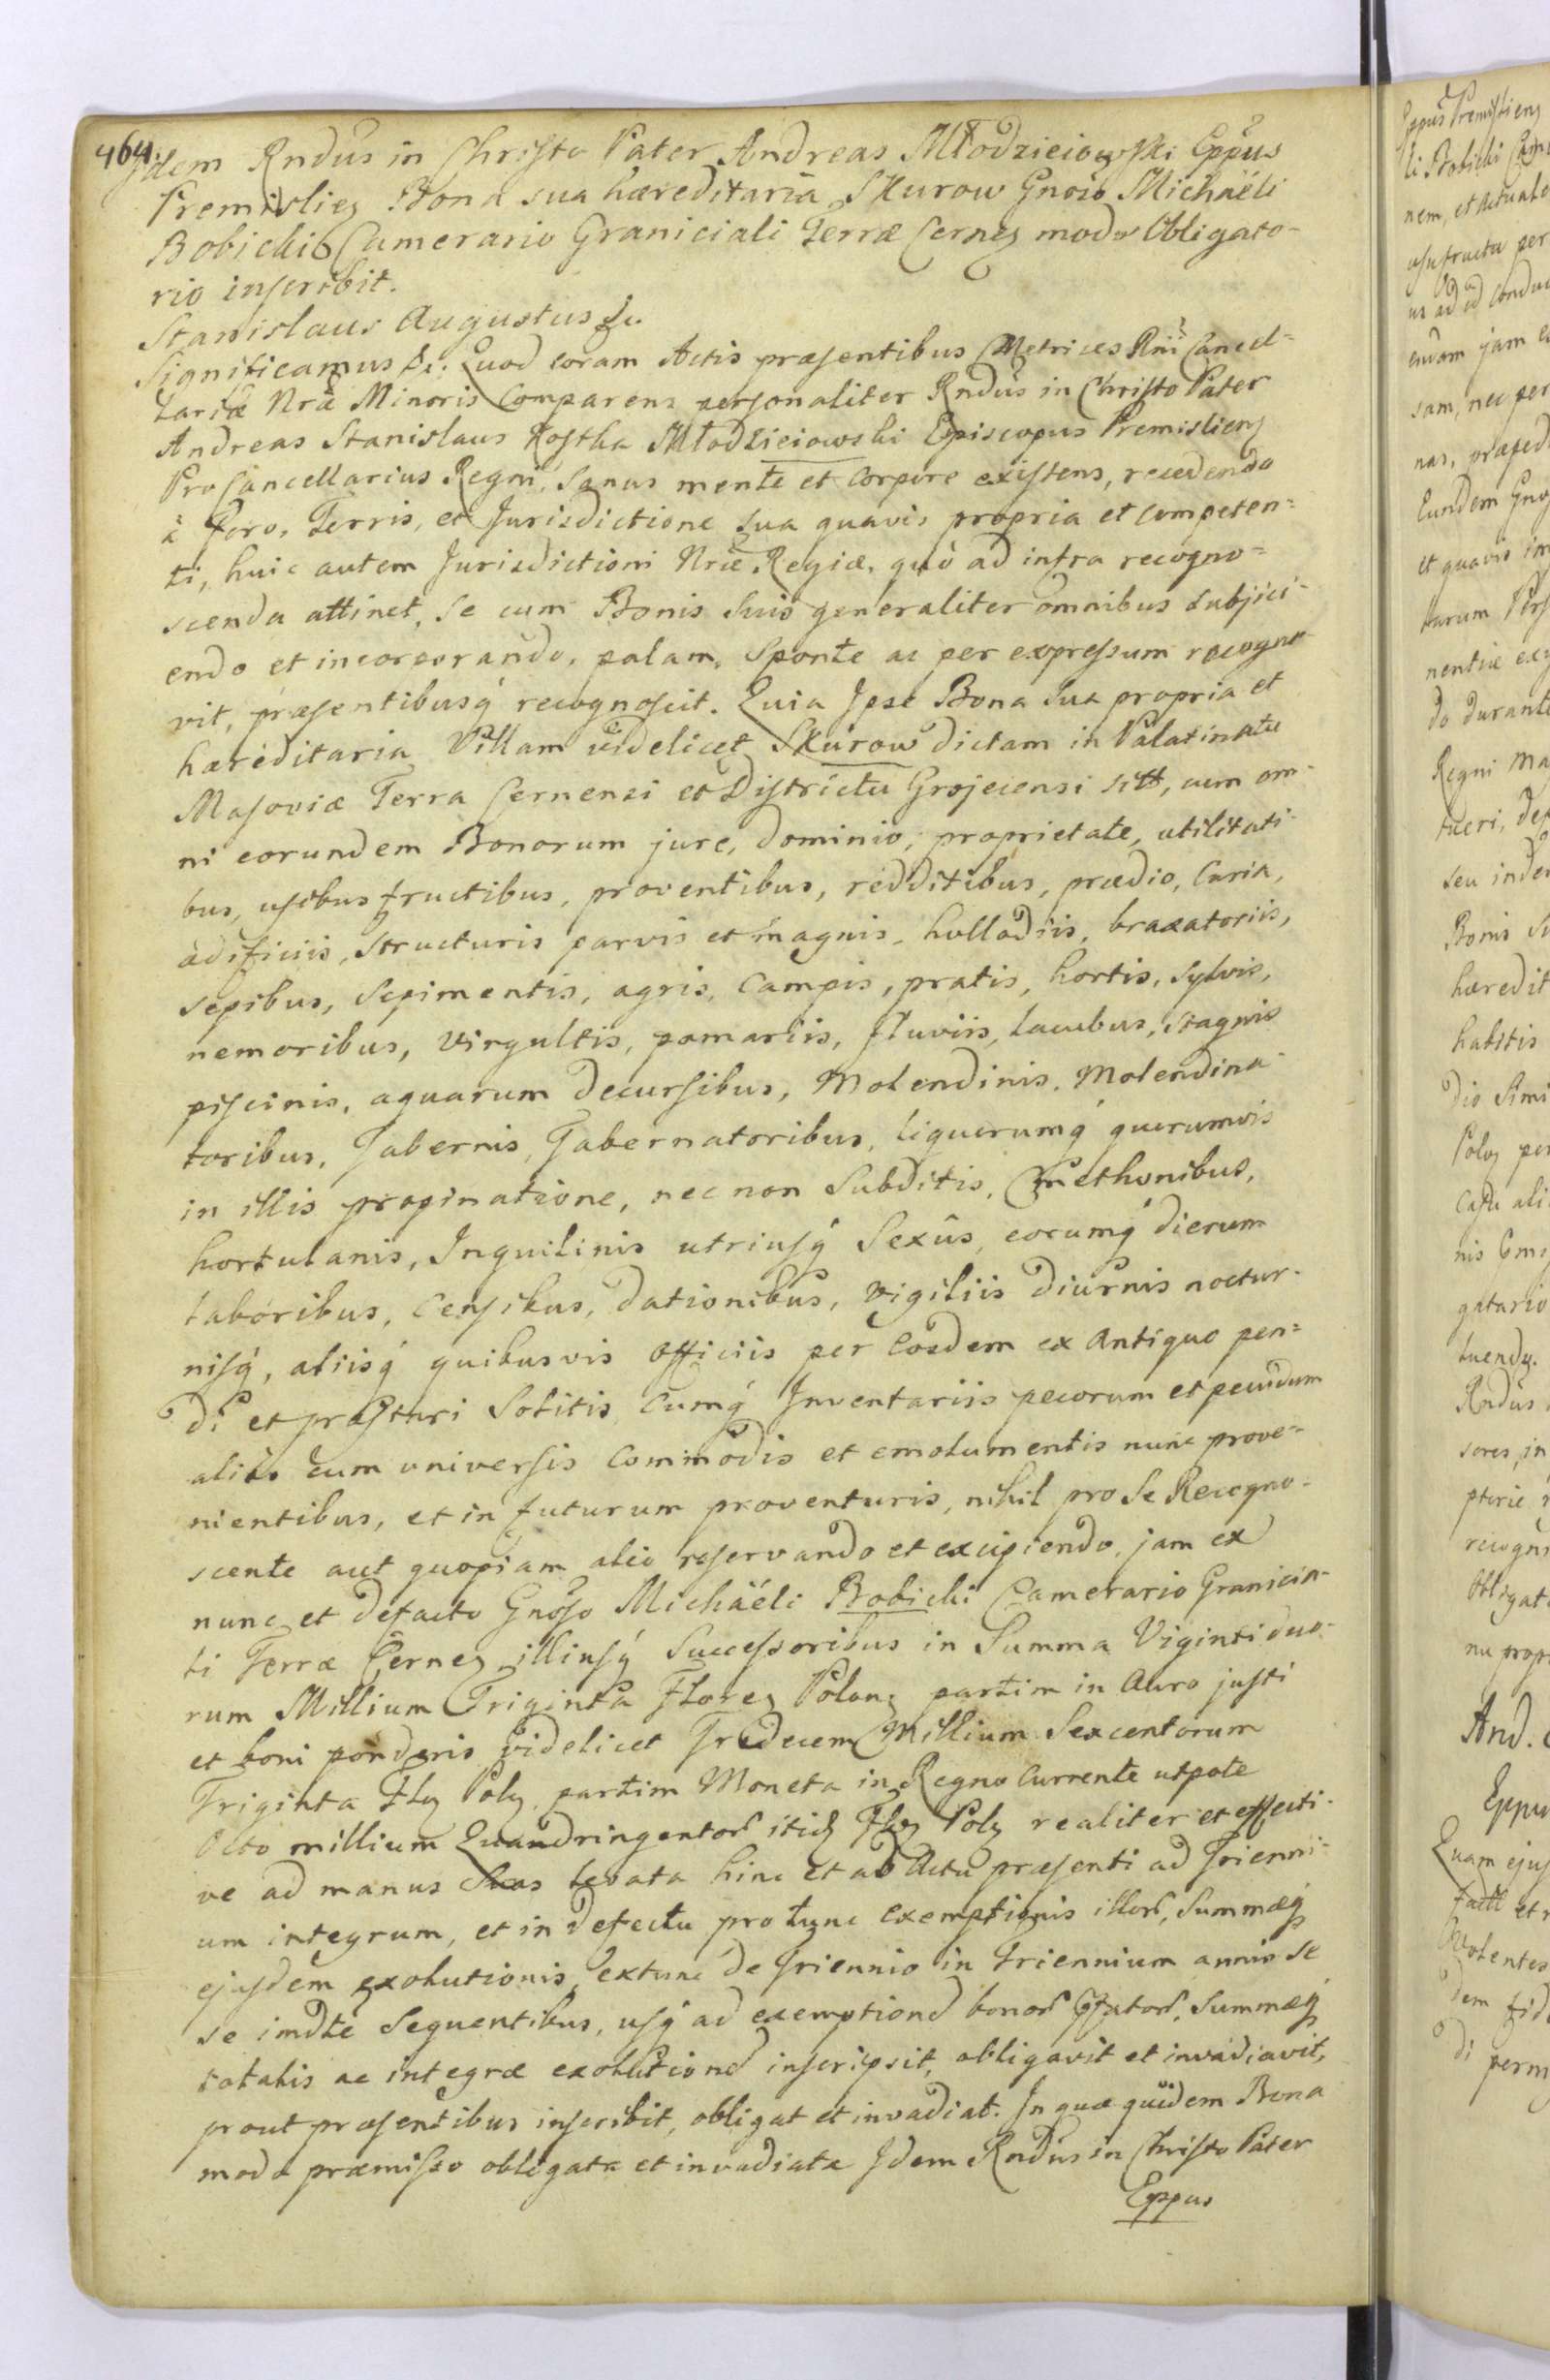 464.
Idem Rndus in Christo Pater Andreas Młodzieiowski Eppus
Premisliens Bona sua hæreditaria Skurow Gnoso Michaëli
Bobicki Camerario Graniciali Terræ Cernens modo Obligato-
rio inscribit.
Stanislaus Augustus &c.
Significamus &c. Quod coram Actis præsentibus Metrices Rni Cancel-
lariæ Nræ Minoris Comparens personaliter Rndus in Christo Pater
Andreas Stanislaus Kostka Młodzieiowski Episcopus Premisliens
ProCancellarius Regni, sanus mente et corpore existens, recedendo
à Foro, Terris, et Jurisdictione sua quavis propria et competen-
ti, huic autem Jurisdictioni Nræ Regiæ, quò ad infra recogno-
scenda attinet, se cum Bonis suis generaliter omnibus subjici-
endo et incorporando, palam, sponte ac per expressum recogno-
vit, præsentibusq recognoscit. Quia Ipse Bona sua propria et
hæreditaria Villam videlicet Skurow dictam in Palatinatu
Masoviæ Terra Cernensi et Districtu Grojecensi sitt, cum om-
ni eorundem Bonorum jure, dominio, proprietate, utilitati-
bus, usibusfructibus, proventibus, redditibus, prædio, Curia,
ædificiis, structuris parvis et magnis, hollodiis, braxatoriis,
sepibus, sepimentis, agris, Campis, pratis, hortis, sylvis,
nemoribus, virgultis, pomariis, fluviis, lacubus, stagnis
piscinis, aquarum decursibus, Molendinis, Molendina-
toribus, Tabernis, Tabernatoribus, liquorumq quorumvis
in illis propinatione, nec non Subditis, Cmethonibus,
hortulanis, Inquilinis utriusq Sexûs, eorumq dierum
laboribus, Censibus, dationibus, vigiliis diurnis noctur-
nisq, aliisq quibusvis officiis per Eosdem ex antiquo pen-
di et præstari Solitis, cumq Inventariis pecorum et pecudum
aliis cum universis Commodis et emolumentis nunc prove-
nientibus, et in futurum proventuris, nihil pro Se Recogno-
scente aut quopiam alio reservando et excipiendo, jam ex
nunc et defacto Gnoso Michaëli Bobicki Camerario Granicia-
li Terræ Cernens illiusq Successoribus in Summa Viginti duo-
rum Millium Triginta Florens Polons partim in Auro justi
et boni ponderis videlicet Tredecem Millium Sexcentorum
Triginta Fls Pols partim Moneta in Regno Currente utpote
Octo millium Quandringentor itid Fls Pols realiter et effecti-
ve ad manus Suas levata hinc et ab Actu præsenti ad Trienni-
um integrum, et in defectu pro tunc exemptionis illor, Summæq
ejusdem exolutionis, extunc de Triennio in triennium annis se
se imdte sequentibus, usq ad exemptione bonor Pfator, Summæq
totalis ac integræ exolutione inscripsit, obligavit et invadiavit,
prout præsentibus inscribit, obligat et invadiat. In quæ quidem Bona
modo præmisso obligata et invadiata Idem Rndus in Christo Pater
Eppus
Eppus Premisliens
li Bobicki Cam
nem, et actuale
usufructu per
us ad
jam
sam, nec per
nas,
Eundem Gno
et quavis im
nentiæ
do durante
Regni Ma
tueri,
seu
Bonis Su
hæredit
habitis
dio simi
Pols per
Casu ali
nis
gatario
tuends.
Rndus
sores, in
ptoriè
recogno
Obligat
nu propr
And.
Eppu
Quam ejus
factt et
Volentes
dem fid
di perm